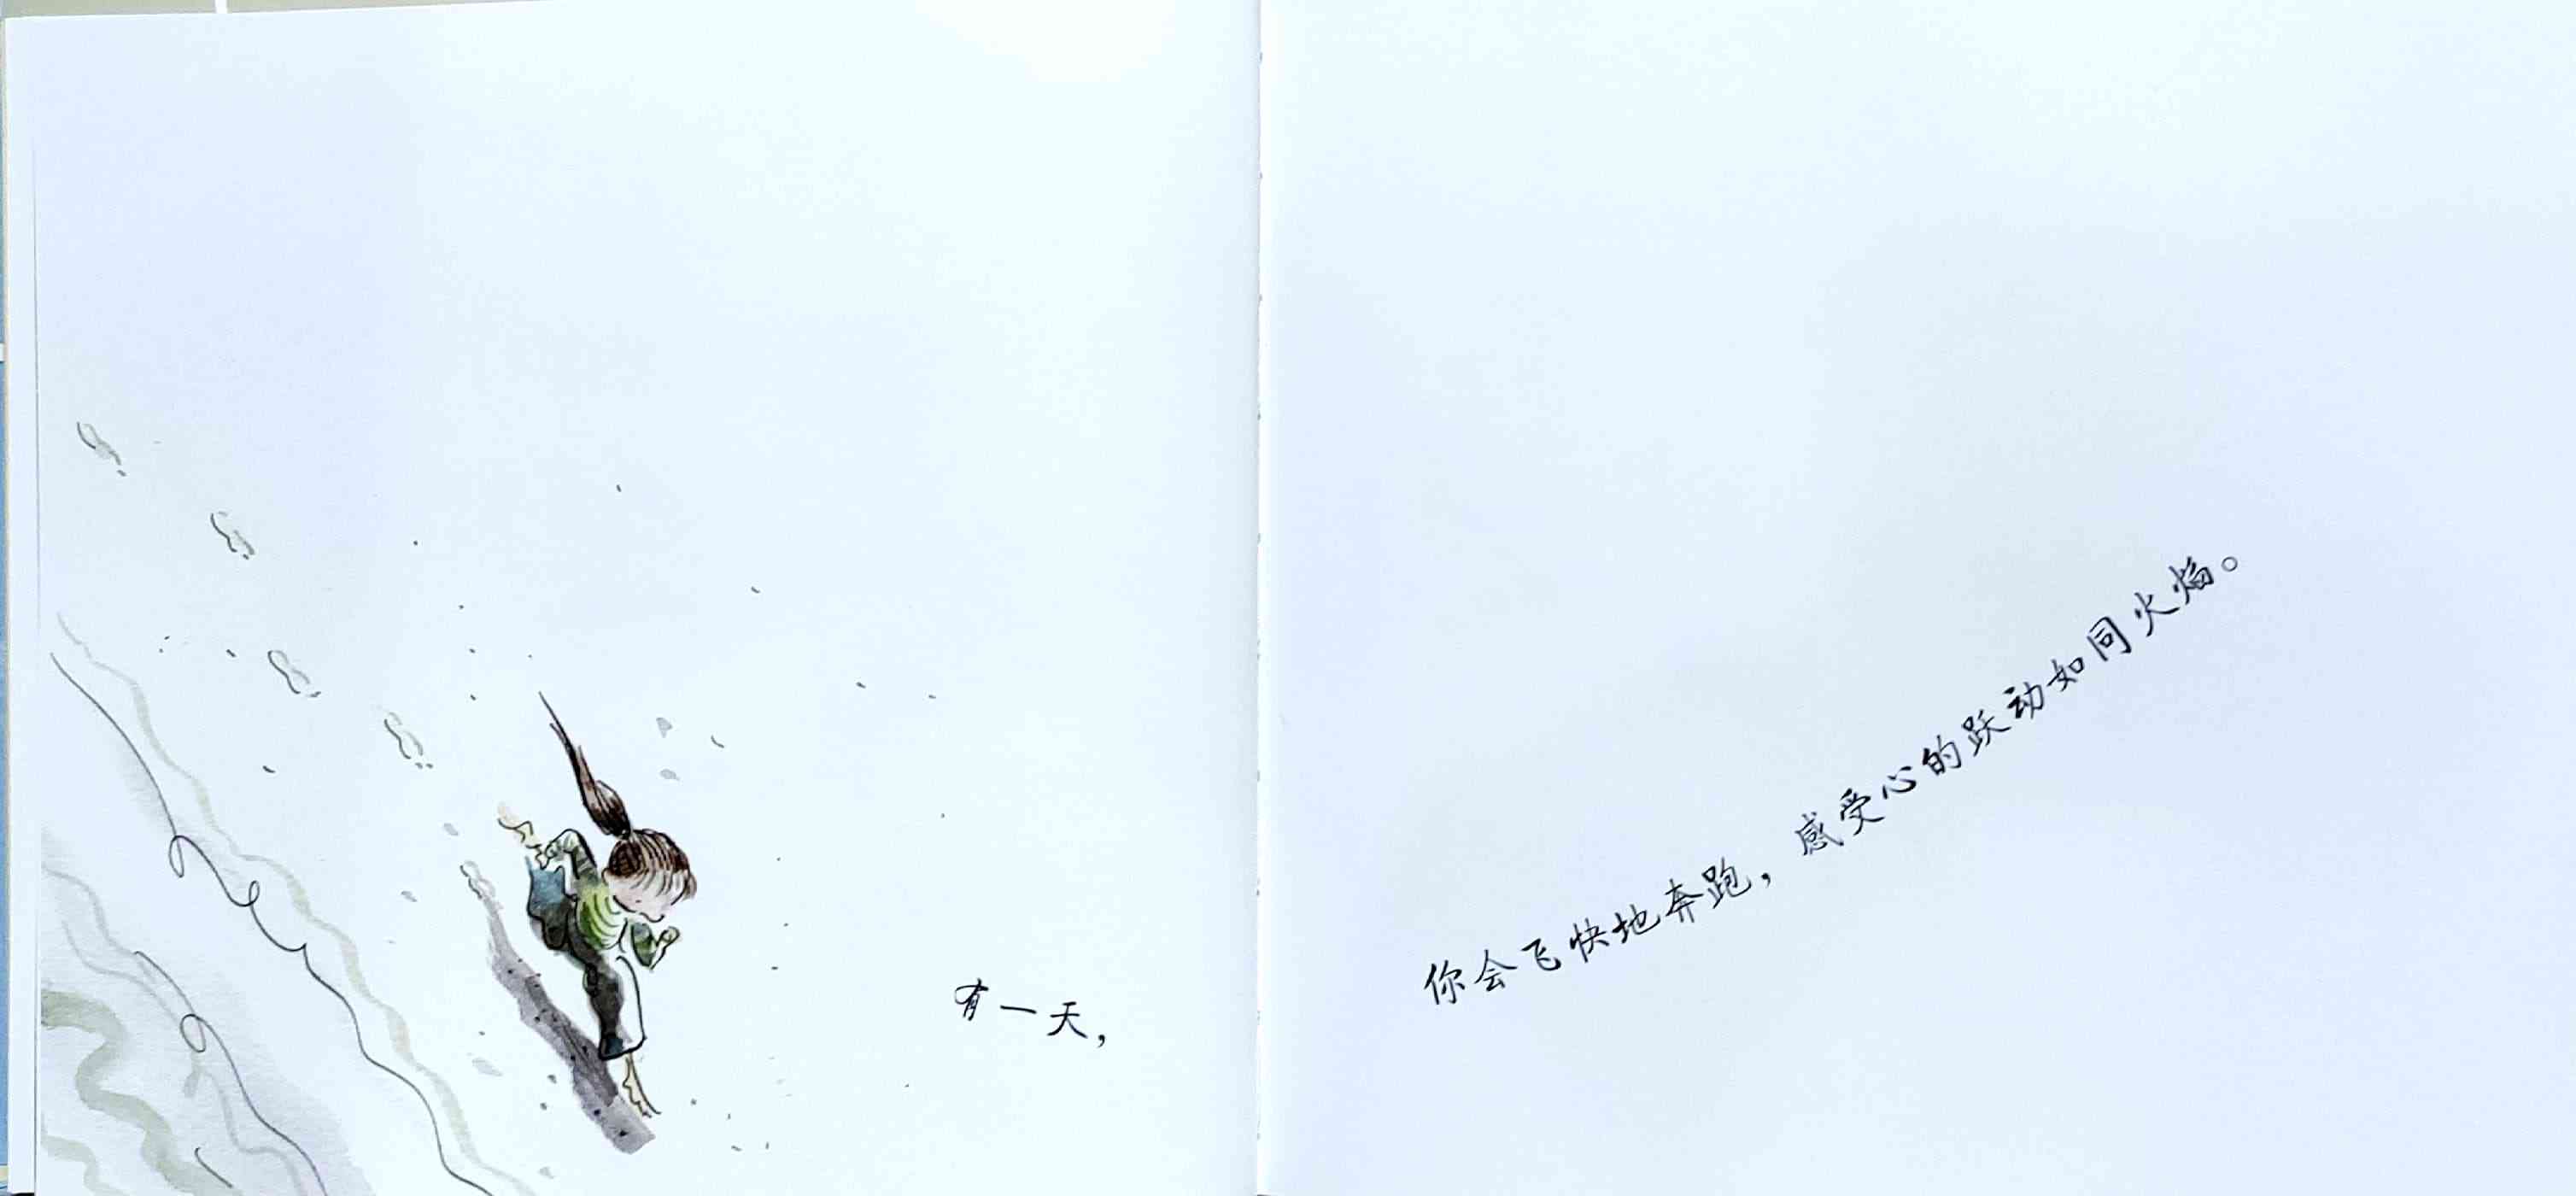 有一天，
你会飞快地奔跑，感受心的跃动如同火焰。